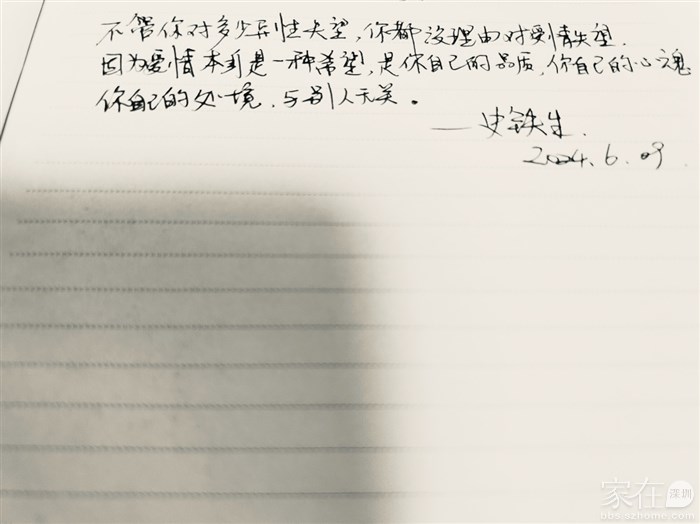 不管你对多少异性失望,你都没理由对爱情失望.
因为爱情本身是一种希望,是你自己的品质,你自己的心魂
你自己的处境,与别人无关。
——史铁生.
2024.6.09
家在深圳
bbs.szhome.com